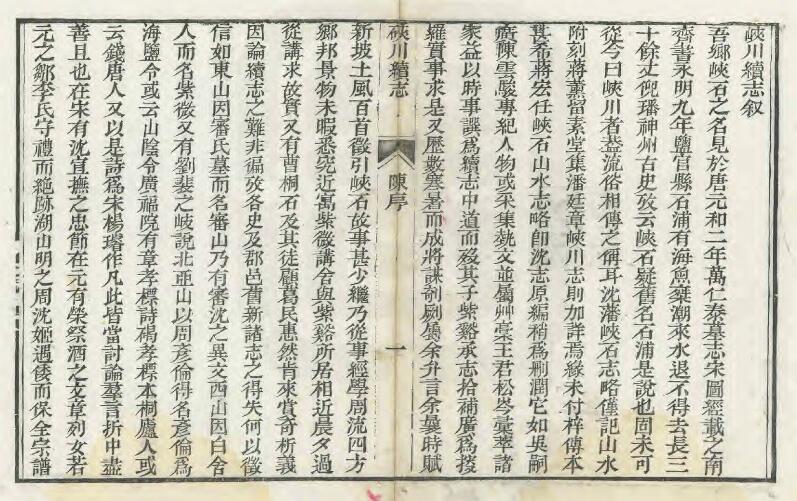 峽川續志叙
吾鄉峽石之名見於唐元和二年萬仁泰墓志宋圖經載之南
齊書永明九年鹽官縣石浦有海魚乘潮來水退不得去長三
十餘丈倪璠神州古史攷云峽石疑舊名石浦是說也固未可
從今曰峽川者葢流俗相傳之稱耳沈藩峽石志略僅記山水
附刻蔣薰留素堂集潘廷章峽川志則加詳焉緣未付梓傳本
甚希蔣宏任峽石山水志略卽沈志原編稍爲刪潤它如吳嗣
廣陳雲駿專紀人物或采集埶文並屬艸藳王君松岑彙萃諸
家益以時事譔爲續志中道而歿其子紫谿承志拾補廣爲搜
羅實事求是又歷數寒暑而成將謀剞劂屬余弁言余曩時賦
峽川續志
陳序
一
新坡土風百首徵引峽石故事甚少繼乃從事經學周流四方
鄉邦景物未暇悉究近寓紫微講舍與紫谿所居相近晨夕過
從講求故實又有曹桐石及其徒顧蒍民惠然肯來賞奇析義
因論續志之難非徧攷各史及郡邑舊新諸志之得失何以徵
信如東山因審氏墓而名審山乃有審沈之異文西山因白舍
人而名紫微又有劉裴之岐說北亚山以周彥倫得名彥倫爲
海鹽令或云山陰令廣福院有章孝標詩碣孝標本桐廬人或
云錢唐人又以是詩爲宋楊璿作凡此皆當討論羣言折中盡
善且也在宋有沈宜撫之忠節在元有榮祭酒之文章列女若
元之鄒李氏守禮而絶跡湖山明之周沈姬遇倭而保全宗譜